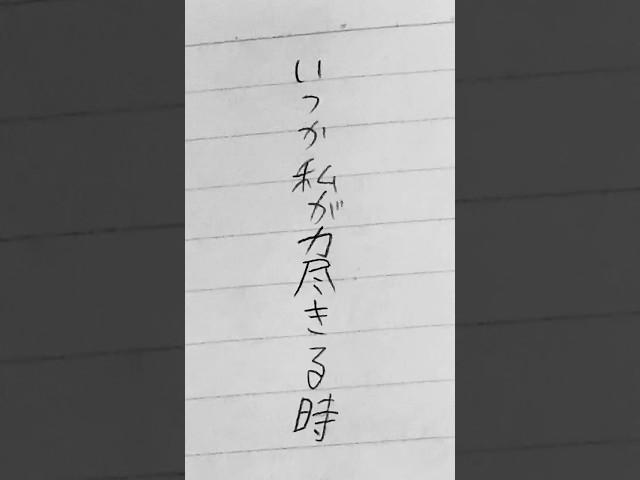 いつか私が力尽きる時